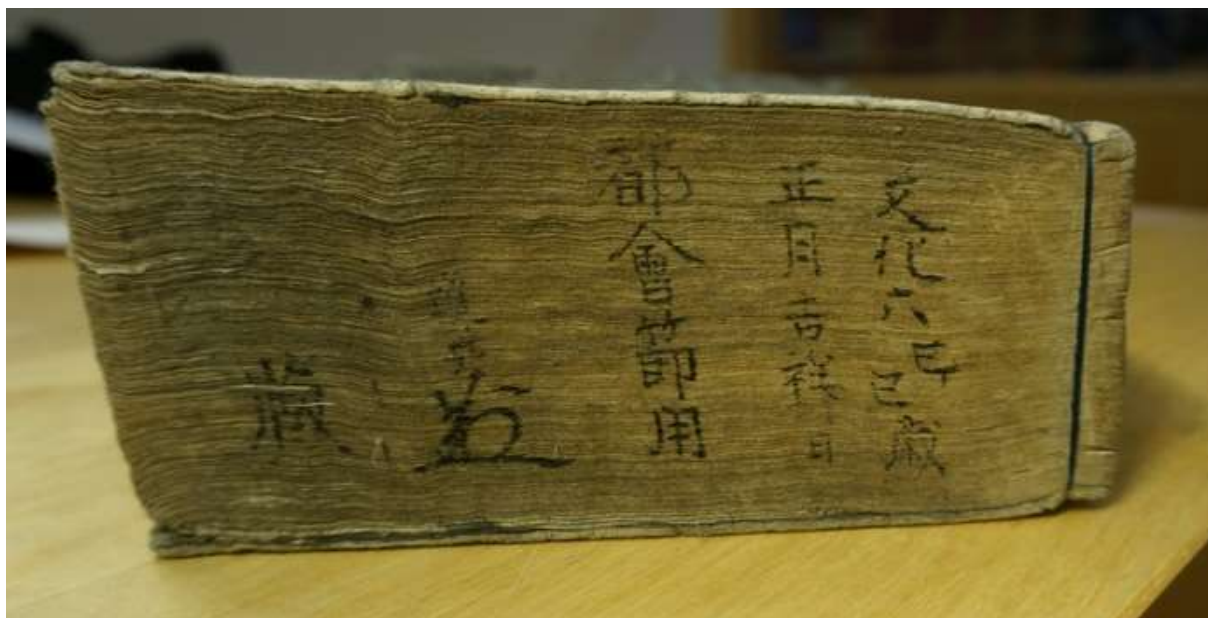 文化六己巳歳
正月吉祥日
都會節用
蔵